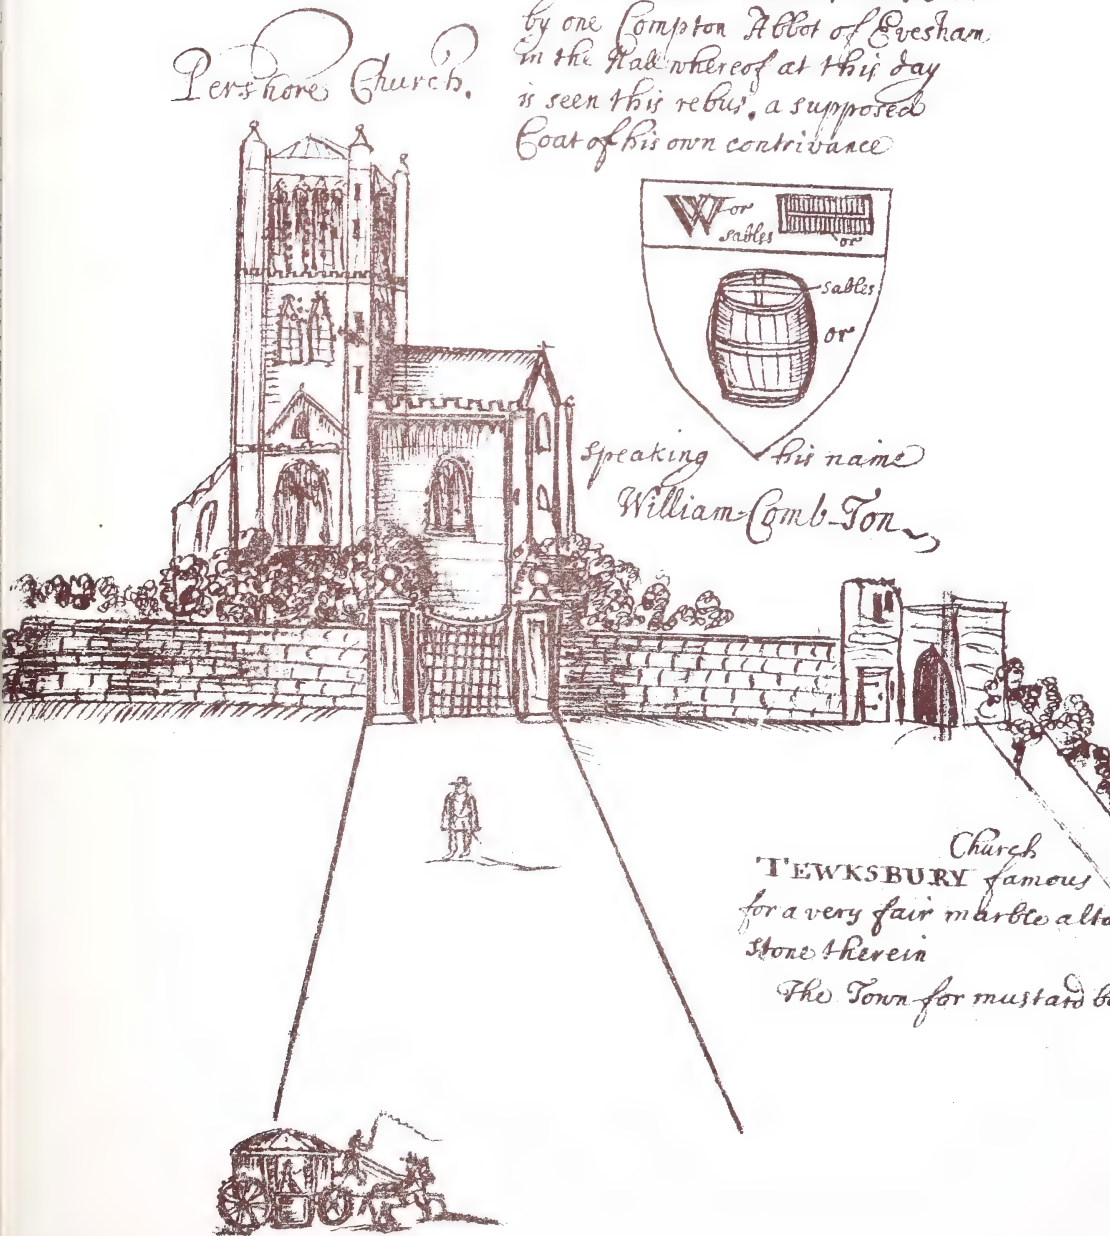 Pershore Church.
by one Compton Abbot of Evesham
in the Hall whereof at this day
is seen this rebus. a supposed
Coat of his own contrivance
W or
sables
or
sables
or
speaking his name
William-Comb-Ton
Church
TEWKSBURY famous
for a very fair marble alta
stone therein
The Town for mustard ba